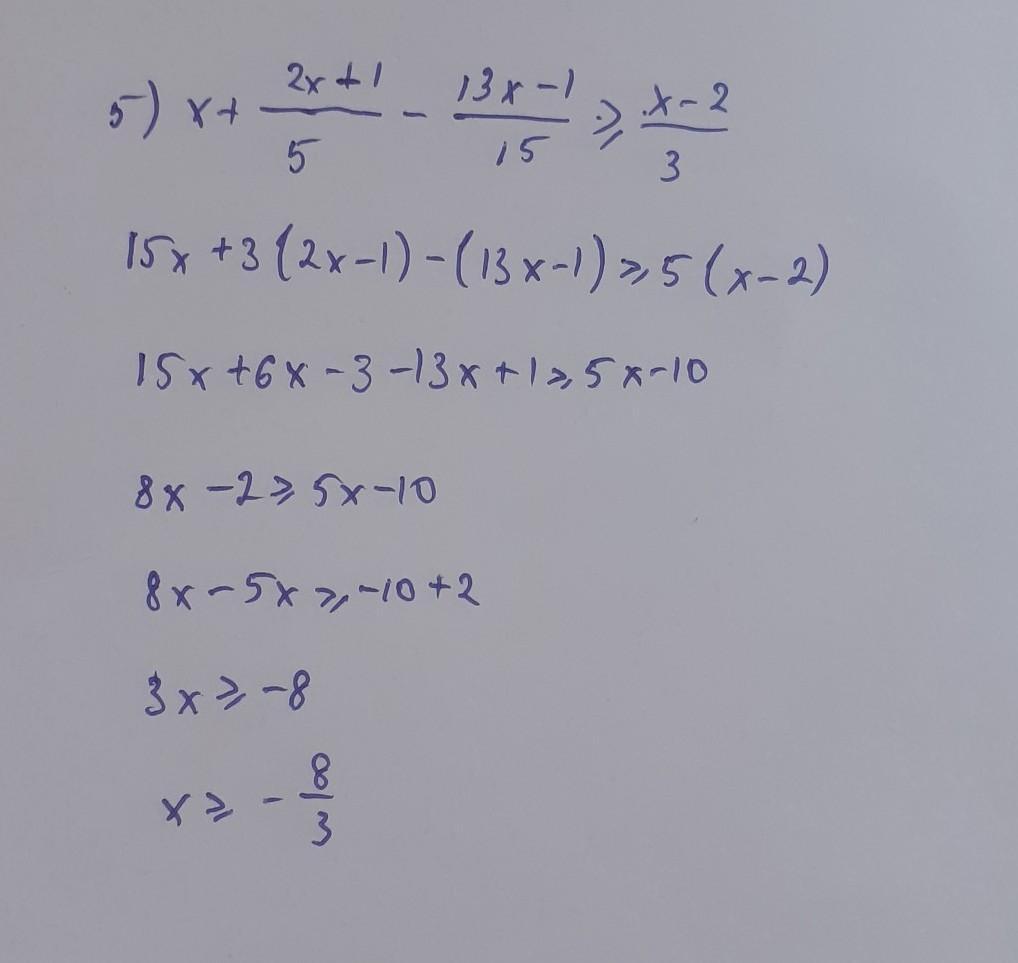 5) x + \frac{2x+1}{5} - \frac{13x-1}{15} ⩾ \frac{x-2}{3}
15x + 3(2x-1) - (13x-1) ⩾ 5(x-2)
15x + 6x - 3 - 13x + 1 ⩾ 5x - 10
8x - 2 ⩾ 5x - 10
8x - 5x ⩾ -10 + 2
3x ⩾ -8
x ⩾ -\frac{8}{3}